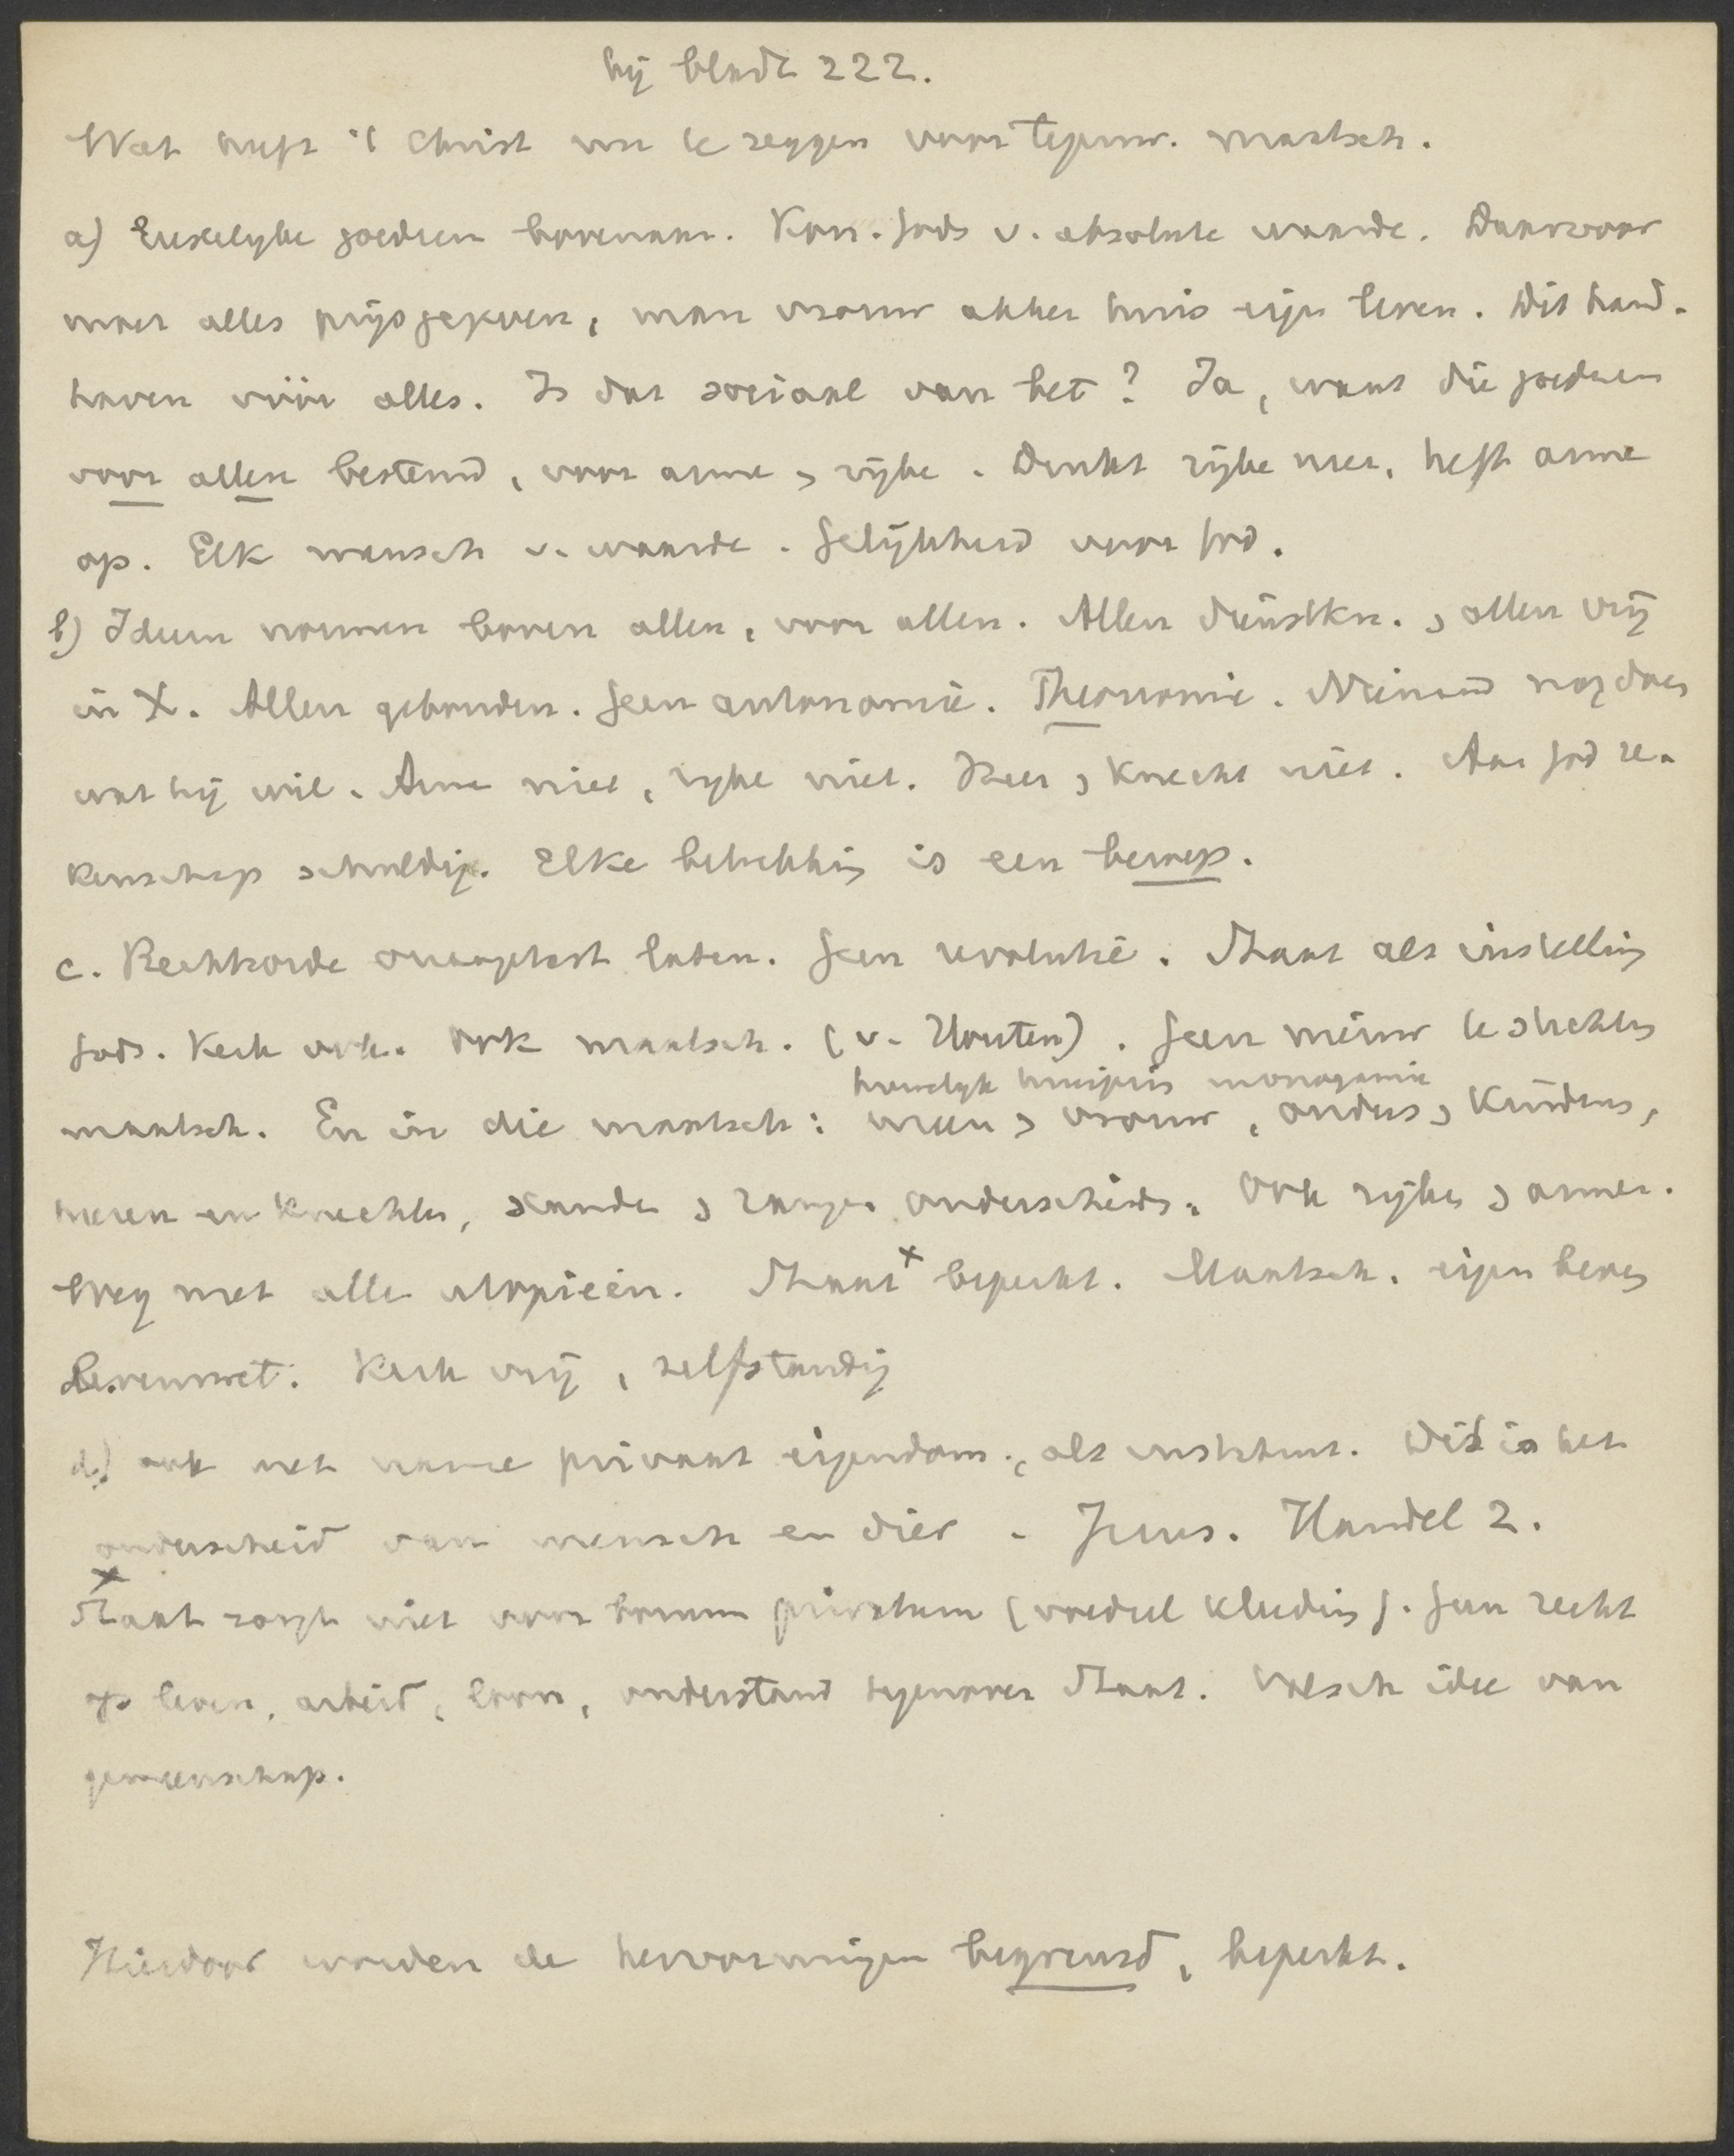 bij bladz 222.
Wat heeft 't Christ nu te zeggen voor tegenw. maatsch.
a) Eeuwelijke goederen bovenaan. Kon. Gods v. absolute waarde. Daarvoor
moet alles prijsgegeven, man vrouw akker huis eigen leven. Dit hand-
haven vóór alles. Is dat sociaal van het? Ja, want die goederen
voor allen bestemd, voor arme en rijke. Drukt rijke neer, heft arme
op. Elk mensch v. waarde. Gelijkheid voor God.
b) Idem normen boven allen, voor allen. Allen dienstkn. en allen vrij
in X. Allen gebonden. Geen autonomie. Theonomie. Niemand mag doen
wat hij wil. Arme niet, rijke niet. Heer en Knecht niet. Aan God re-
kenschap schuldig. Elke betrekking is een beroep.
c. Rechtsorde onaangetast laten. Geen revolutie. Staat als instelling
Gods. Kerk ook. Ook maatsch. (v. Houten). Geen nieuw te stichten
huwelijk huisgezin monogamie
maatsch. En in die maatsch: man en vrouw, ouders en Kinderen,
heren en Knechten, standen en rangen onderscheids. Ook rijken en armen.
Weg met alle utopieën. Staat x beperkt. Maatsch. eigen leven
levenswet. Kerk vrij, zelfstandig
d.) ook met name privaat eigendom, als instituut. Dit is het
onderscheid van mensch en dier. Jezus. Handel 2.
x Staat zorgt niet voor bonum privatum (voedsel kleding). Geen recht
op leven, arbeid, loon, onderstand tegenover Staat. Valsch idee van
gemeenschap.
Hierdoor worden de hervormingen begrensd, beperkt.